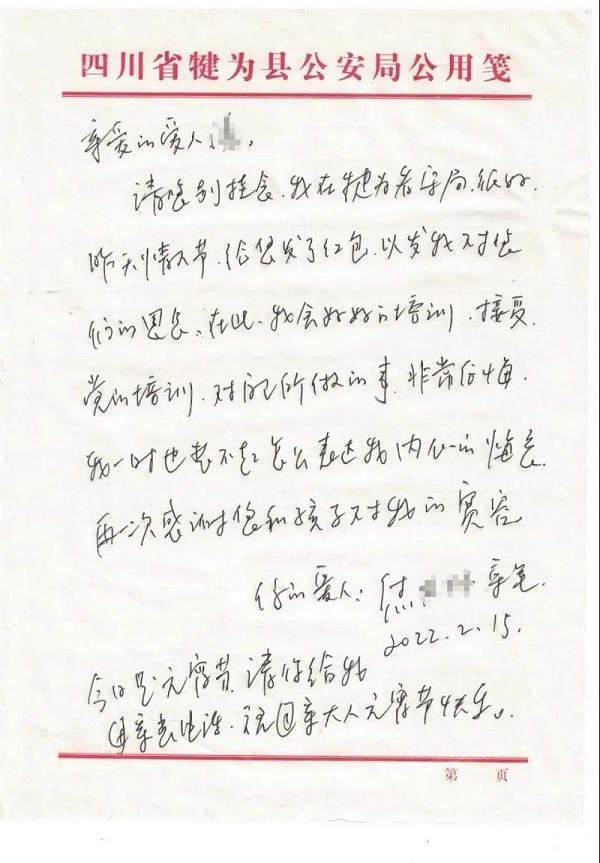 四川省犍为县公安局公用笺
亲爱的爱人
请您别挂念、我在犍为看守局、很好、
昨天情人节、给您发了红包、以发我对您
们的思念、在此、我会好好的培训、接受
党的培训、对自己所做的事、非常后悔、
我一时也想不起怎么表达我内心的悔
再一次感谢您和孩子对我的宽容
你的爱人：焦 亲笔、
2022.2.15.
今日是元宵节、请你给我
母亲去电话、祝国亲大人元宵节快乐。
第 页